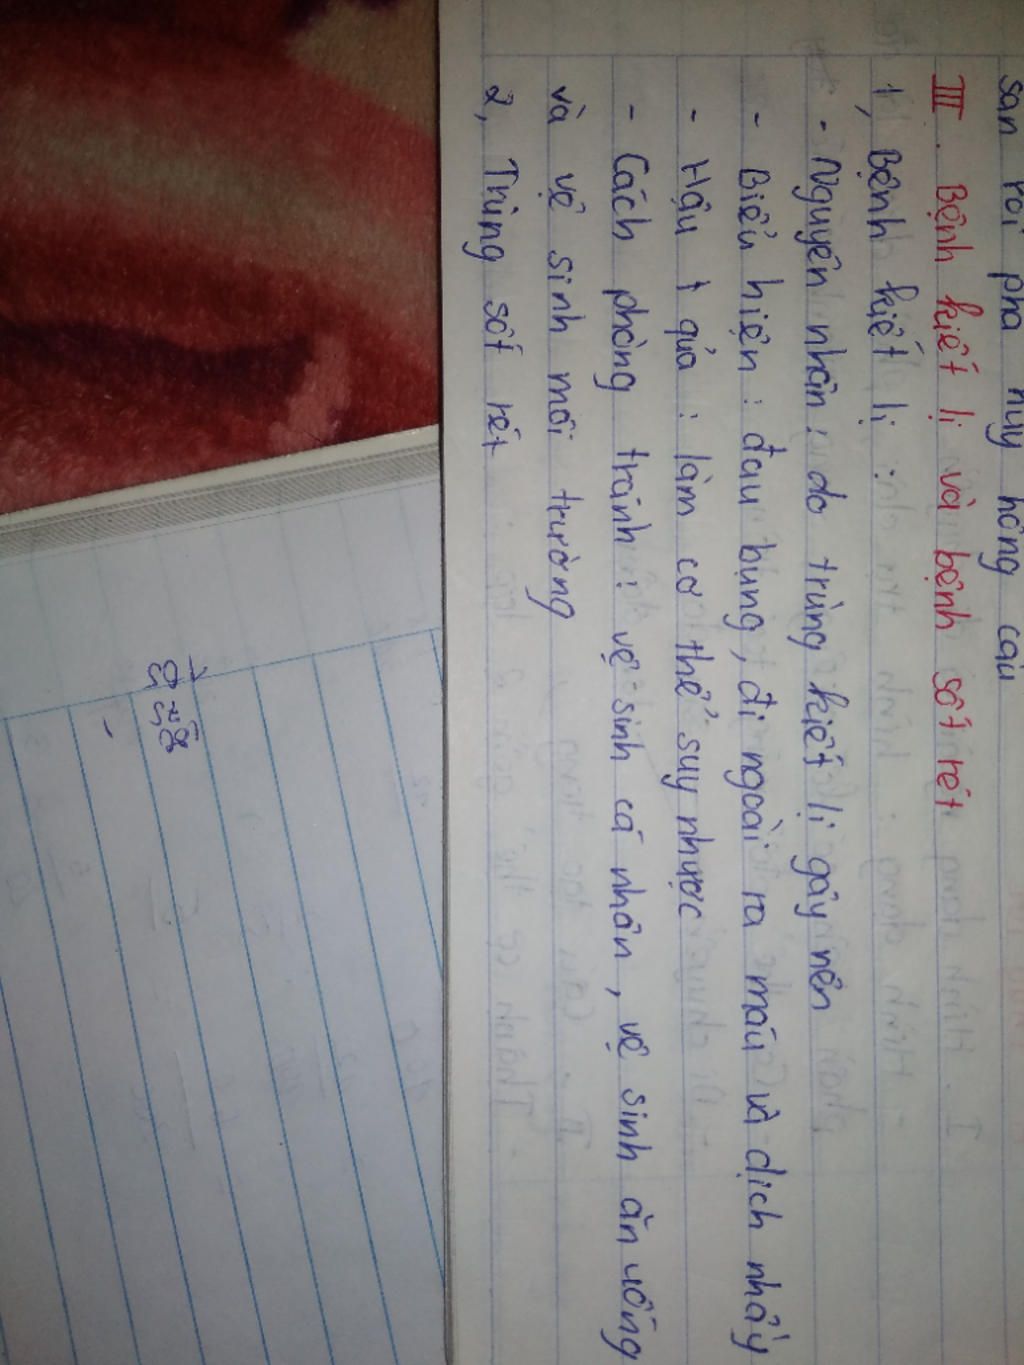 sản rồi phá hủy hồng cầu
III. Bệnh kiết lị và bệnh sốt rét
1, Bệnh kiết lị :
- Nguyên nhân : do trùng kiết lị gây nên
- Biểu hiện : đau bụng, đi ngoài ra máu và dịch nhầy
- Hậu quả : làm cơ thể suy nhược
- Cách phòng tránh : vệ sinh cá nhân, vệ sinh ăn uống
và vệ sinh môi trường
2, Trùng sốt rét